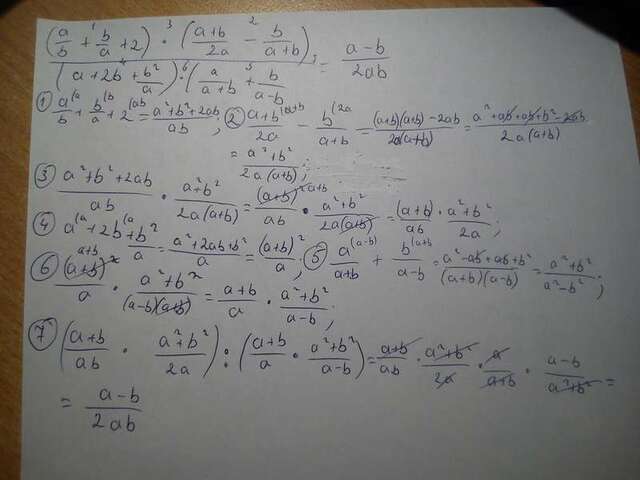 ((a/b + b/a + 2) · ((a+b)/2a − b/(a+b))) / ((a + 2b + b²/a) · (a/(a+b) + b/(a−b))) = (a−b)/2ab
① a/b + b/a + 2 = (a²+b²+2ab)/ab; ② (a+b)/2a − b/(a+b) = ((a+b)(a+b) − 2ab)/2a(a+b) = (a²+ab+ab+b²−2ab)/2a(a+b)
= (a²+b²)/2a(a+b);
③ (a²+b²+2ab)/ab · (a²+b²)/2a(a+b) = (a+b)²/ab · (a²+b²)/2a(a+b) = (a+b)/ab · (a²+b²)/2a;
④ a + 2b + b²/a = (a²+2ab+b²)/a = (a+b)²/a; ⑤ a/(a+b) + b/(a−b) = (a²−ab+ab+b²)/(a+b)(a−b) = (a²+b²)/(a²−b²);
⑥ (a+b)²/a · (a²+b²)/(a−b)(a+b) = (a+b)/a · (a²+b²)/(a−b);
⑦ ((a+b)/ab · (a²+b²)/2a) : ((a+b)/a · (a²+b²)/(a−b)) = (a+b)/ab · (a²+b²)/2a · a/(a+b) · (a−b)/(a²+b²) =
= (a−b)/2ab